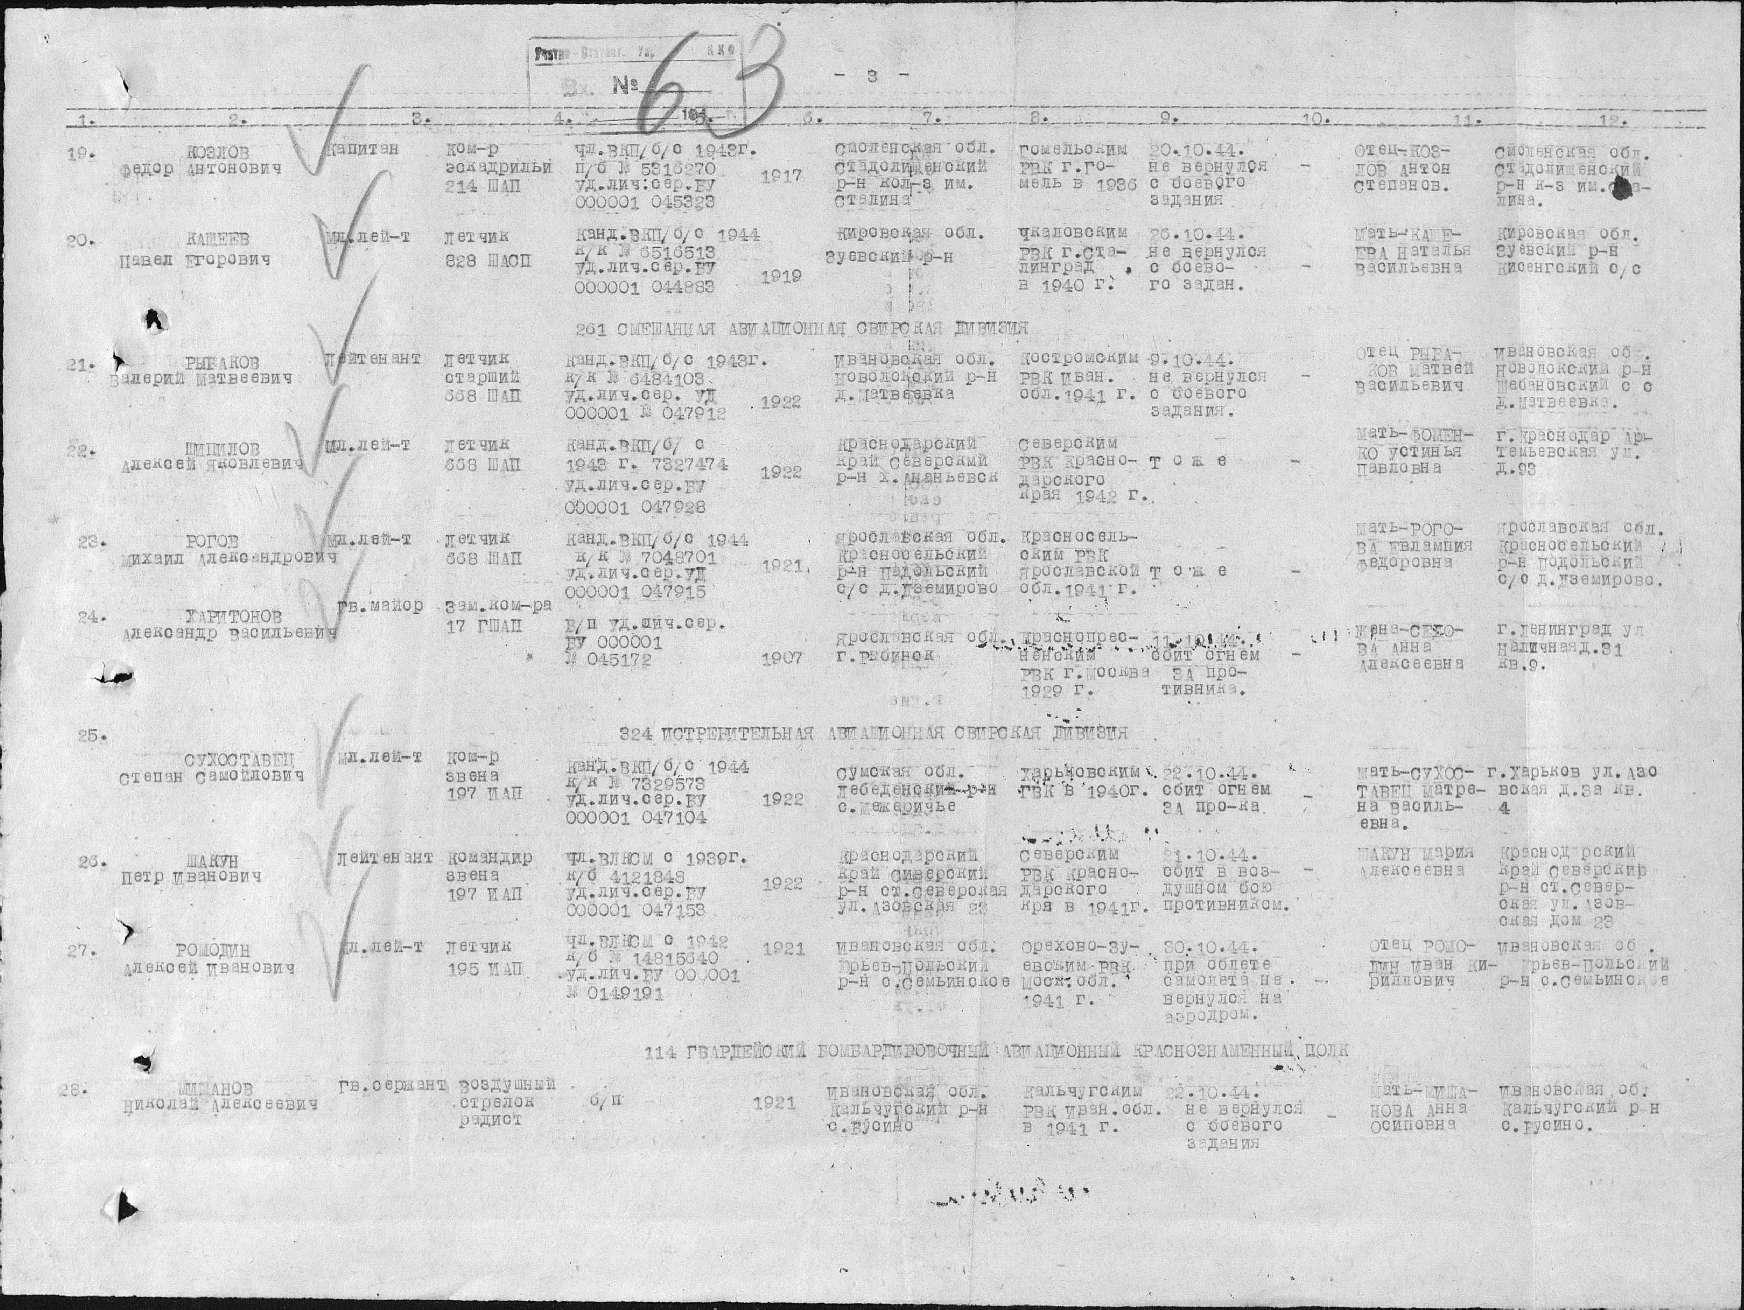 - 3 -
Вх. № 63
1. 2. 3. 4. 5. 6. 7. 8. 9. 10. 11. 12.
19. КОЗЛОВ Федор Антонович
Капитан
Ком-р
эскадрильи
214 ШАП
Чл.ВКП/б/с 1943г.
п/б № 5316270
уд.лич.сер.ВУ
000001 045323
1917
Смоленская обл.
Стадолищенский
р-н кол-з им.
Сталина
Гомельским
РВК г.Го-
мель в 1936
20.10.44.
не вернулся
с боевого
задания
-
Отец-КОЗ-
ЛОВ Антон
Степанов.
Смоленская обл.
Стадолищенский
р-н к-з им.Ста-
лина.
20. КАЩЕЕВ
Павел Егорович
Мл.лей-т
Летчик
828 ШАСП
Канд.ВКП/б/с 1944
к/к № 6516513
уд.лич.сер.ВУ
000001 044883
1919
Кировская обл.
Зуевский р-н
Чкаловским
РВК г.Ста-
линград
в 1940 г.
26.10.44.
не вернулся
с боево-
го задан.
-
Мать-КАЩЕ-
ЕВА Наталья
Васильевна
Кировская обл.
Зуевский р-н
Кисенгский с/с
261 СМЕШАННАЯ АВИАЦИОННАЯ СВИРСКАЯ ДИВИЗИЯ
21. РЫБАКОВ
Валерий Матвеевич
Лейтенант
Летчик
старший
668 ШАП
Канд.ВКП/б/с 1943г.
к/к № 6484103
уд.лич.сер. УД
000001 № 047912
1922
Ивановская обл.
д.Матвеевка
Костромским
РВК Иван.
обл.1941 г.
9.10.44.
не вернулся
с боевого
задания.
-
Отец РЫБА-
КОВ Матвей
Васильевич
Ивановская об.
д.Матвеевка.
22. ШИПИЛОВ
Алексей Яковлевич
Мл.лей-т
Летчик
668 ШАП
Канд.ВКП/б/ с
1943 г. 7327474
уд.лич.сер.ВУ
000001 047928
1922
Краснодарский
край Северский
р-н х.Ананьевск
Северским
РВК Красно-
дарского
края 1942 г.
т о ж е
-
Павловна
г.Краснодар Ар-
темьевская ул.
д.93
23. РОГОВ
Михаил Александрович
Мл.лей-т
Летчик
668 ШАП
Канд.ВКП/б/с 1944
к/к № 7048701
уд.лич.сер.УД
000001 047915
1921
Ярославская обл.
Красносельский
р-н Подольский
с/с д.Дземирово
Красносель-
ским РВК
Ярославской
обл.1941 г.
т о ж е
-
Мать-РОГО-
ВА Евлампия
Федоровна
Ярославская обл.
Красносельский
р-н Подольский
с/с д.Дземирово.
24. ХАРИТОНОВ
Александр Васильевич
Гв.майор
Зам.ком-ра
17 ГШАП
Б/п уд.лич.сер.
ВУ 000001
№ 045172
1907
Ярославская обл.
г.Рыбинск
Краснопрес-
ненским
РВК г.Москва
1929 г.
11.10.44.
сбит огнем
ЗА про-
тивника.
-
ВА Анна
Алексеевна
г.Ленинград ул
Наличная д.31
кв.9.
324 ИСТРЕБИТЕЛЬНАЯ АВИАЦИОННАЯ СВИРСКАЯ ДИВИЗИЯ
25. СУХОСТАВЕЦ
Степан Самойлович
Мл.лей-т
Ком-р
звена
197 ИАП
Канд.ВКП/б/с 1944
к/к № 7329573
уд.лич.сер.ВУ
000001 047104
1922
Сумская обл.
Лебеденский р-н
с.Межеричье
Харьковским
ГВК в 1940г.
22.10.44.
сбит огнем
ЗА про-ка
-
Мать-СУХОС-
ТАВЕЦ Матре-
на Василь-
евна.
г.Харьков ул.Азо
вская д.3а кв.
4
26. ШАКУН
Петр Иванович
Лейтенант
Командир
звена
197 ИАП
Чл.ВЛКСМ с 1939г.
к/б 4121848
уд.лич.сер.ВУ
000001 047153
1922
Краснодарский
край Сиверский
р-н ст.Северская
ул.Азовская 23
Северским
РВК Красно-
дарского
кря в 1941г.
21.10.44.
сбит в воз-
душном бою
противником.
-
ШАКУН Мария
Алексеевна
Краснод рский
край Северский
р-н ст.Север-
ская ул.Азов-
ская дом 23
27. РОМОДИН
Алексей Иванович
Мл.лей-т
Летчик
195 ИАП
Чл.ВЛКСМ с 1942
к/б № 14815640
уд.лич.ВУ 000001
№ 0149191
1921
Ивановская обл.
Юрьев-Польский
р-н с.Семьинское
Орехово-Зу-
евским РВК
Моск.обл.
1941 г.
30.10.44.
при облете
самолета не
вернулся на
аэродром.
-
Отец РОМО-
ДИН Иван Ки-
риллович
Ивановская об .
Юрьев-Польский
р-н с.Семьинское
114 ГВАРДЕЙСКИЙ БОМБАРДИРОВОЧНЫЙ АВИАЦИОННЫЙ КРАСНОЗНАМЕННЫЙ ПОЛК
28. МИШАНОВ
Николай Алексеевич
Гв.сержант
Воздушный
стрелок
радист
б/п
1921
Ивановская обл.
Кальчугский р-н
с.Бусино
Кальчугским
РВК Иван.обл.
в 1941 г.
22.10.44.
не вернулся
с боевого
задания
-
Мать-МИША-
НОВА Анна
Осиповна
Ивановская об.
Кальчугский р-н
с.Бусино.